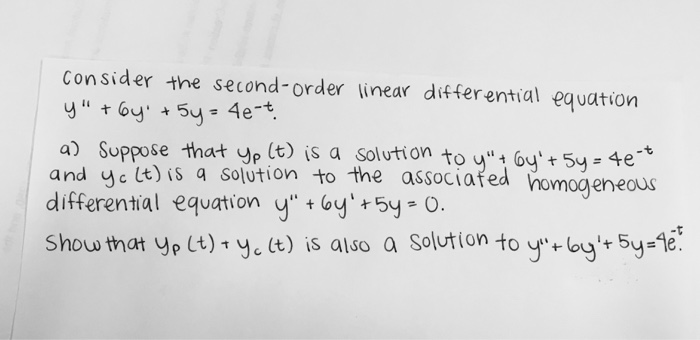 consider the second-order linear differential equation
y" + 6y' + 5y = 4e^-t.
a) Suppose that yp (t) is a solution to y" + 6y' + 5y = 4e^-t
and yc (t) is a solution to the associated homogeneous
differential equation y" + 6y' + 5y = 0.
Show that yp (t) + yc (t) is also a solution to y" + 6y' + 5y = 4e^-t.